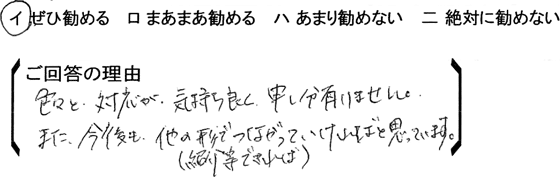 イ ぜひ勧める ロ まあまあ勧める ハ あまり勧めない ニ 絶対に勧めない
ご回答の理由
色々と、対応が、気持ち良く、申し分有りません。
また、今後も、他の形でつながっていければと思っています。
(紹介等できれば)